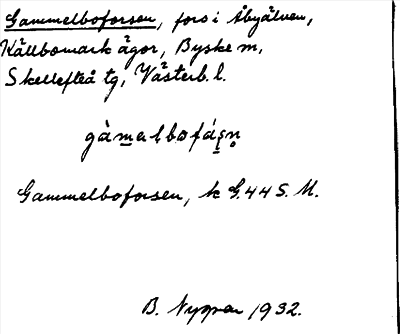 Gammelboforsen, fors i Åbyälven,
Källbomark ägor, Byske m,
Skellefteå tg, Västerb. l.
gàmalbofáṣṇ
Gammelboforsen, k G.44 S. M.
B. 1932.